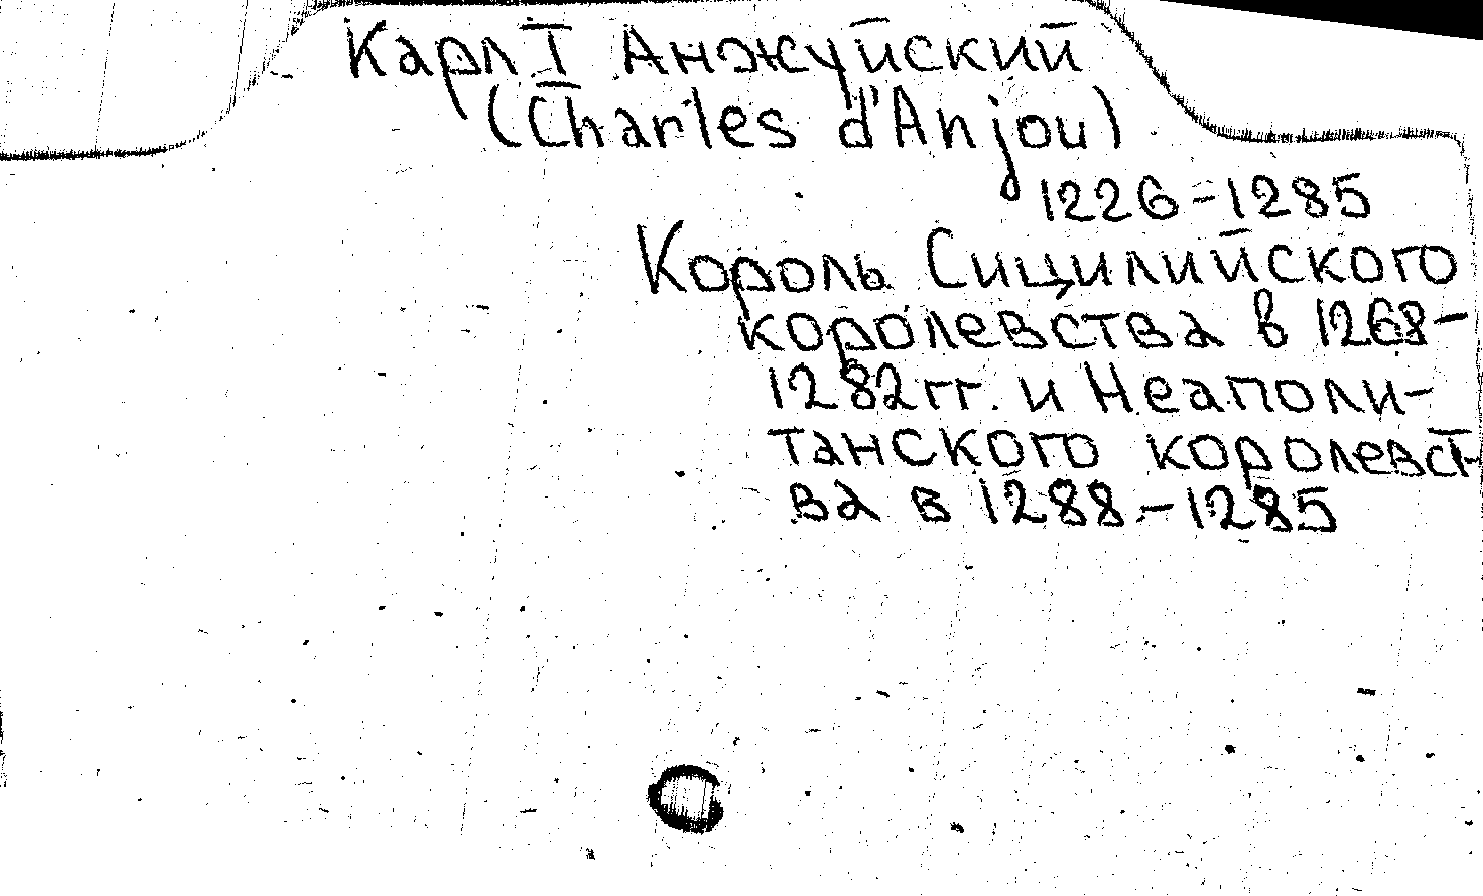 Карл I Анжуйский
(Charles d'Anjou)
1226-1285
Король Сицилийского
королевства в 1268-
1282гг. и Неаполи-
танского королевст-
ва в 1288-1285